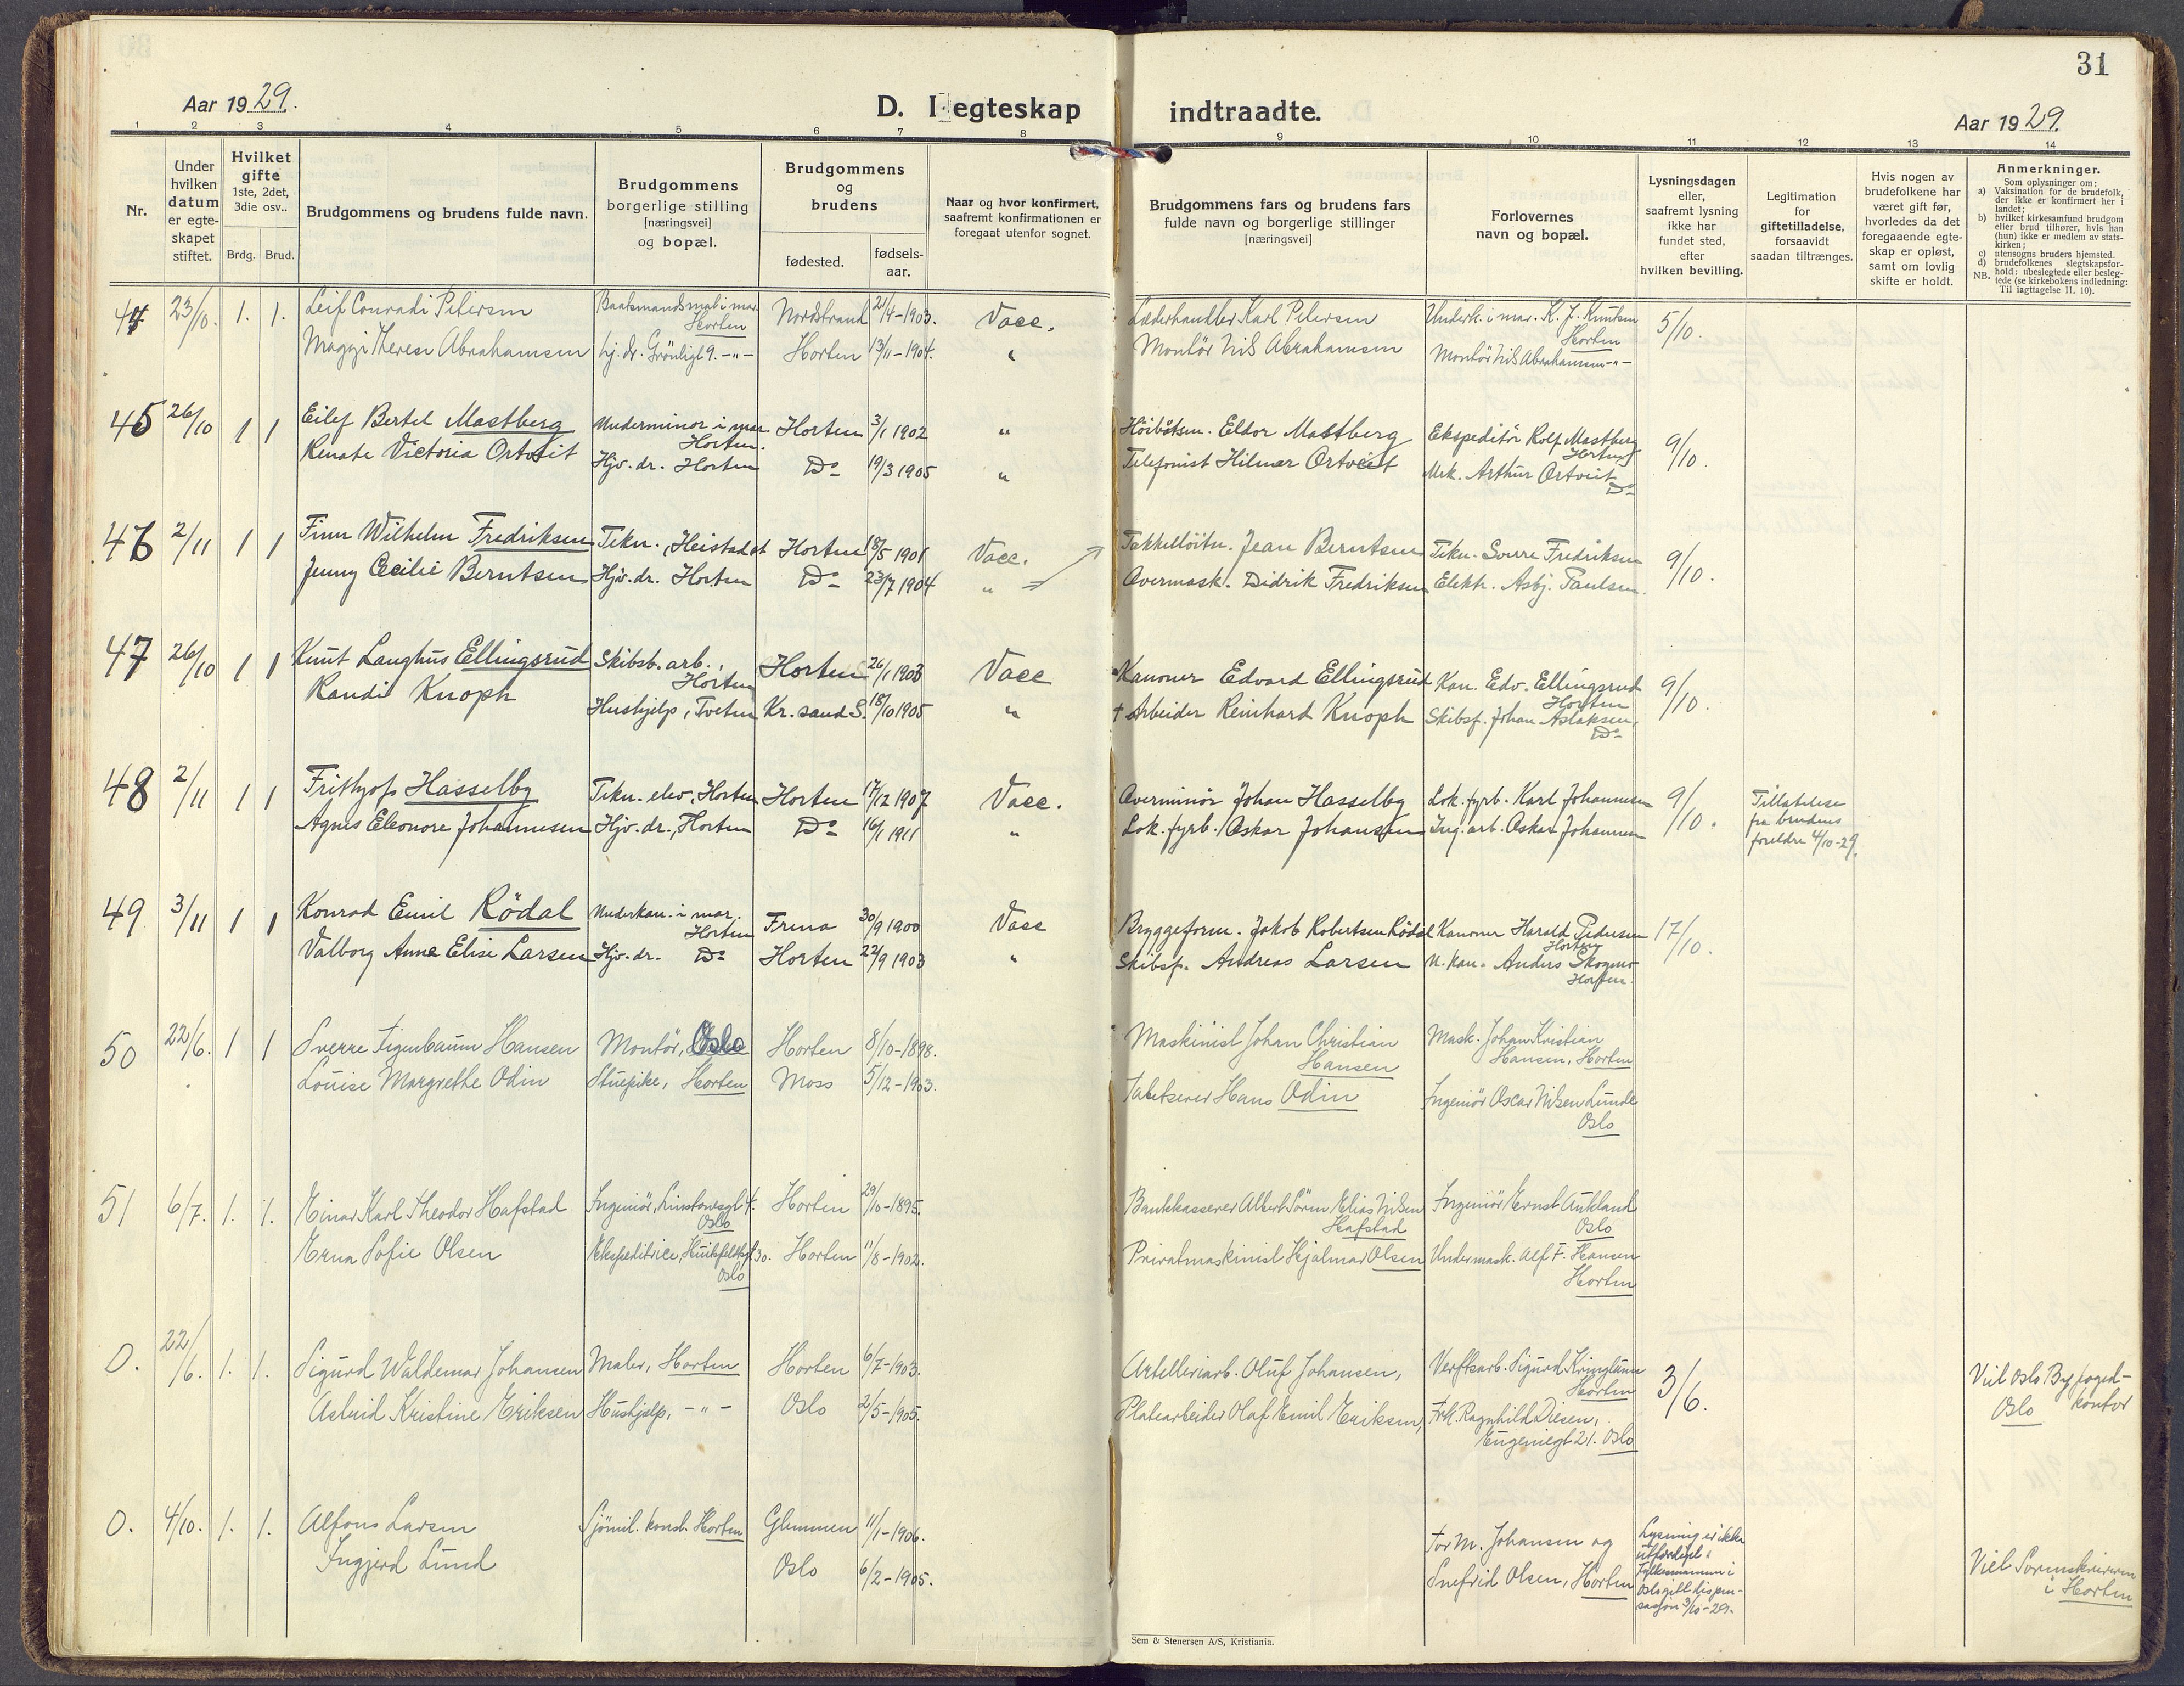 31
Aar 1929.
D. I egteskap indtraadte.
Aar 1929.
1 2 3 4 5 6 7 8 9 10 11 12 13 14
Nr.
Under hvilken datum er egte-skapet stiftet.
Hvilket gifte 1ste, 2det, 3die osv..
Brdg. Brud.
Brudgommens og brudens fulde navn.
Brudgommens borgerlige stilling [næringsvei] og bopæl.
Brudgommens og brudens
fødested. fødsels-aar.
Naar og hvor konfirmert, saafremt konfirmationen er foregaat utenfor sognet.
Brudgommens fars og brudens fars fulde navn og borgerlige stillinger [næringsvei]
Forlovernes navn og bopæl.
Lysningsdagen eller, saafremt lysning ikke har fundet sted, efter hvilken bevilling.
Legitimation for giftetilladelse, forsaavidt saadan tiltrænges.
Hvis nogen av brudefolkene har været gift før, hvorledes da det foregaaende egte-skap er opløst, samt om lovlig skifte er holdt.
Anmerkninger.
Som oplysninger om:
a) Vaksination for de brudefolk, der ikke er konfirmert her i landet;
b) hvilket kirkesamfund brudgom eller brud tilhører, hvis han (hun) ikke er medlem av stats-kirken;
c) utensogns bruders hjemsted.
d) brudefolkenes slegtskapsfor-hold: ubeslegtede eller besleg-tede (se kirkebokens indledning: NB. Til iagttagelse II. 10).
44. 23/10. 1. 1. Leif Conradi Petersen Baatsmandsmat i mar. Horten Nordstrand 21/4-1903. Vacc. Læderhandler Karl Petersen Underk. i mar. K. J. Knutsen Horten 5/10.
Maggi Therese Abrahamsen hj. dr. Grönligt 9. -"- Horten 13/11-1904. " Montör Nils Abrahamsen Montör Nils Abrahamsen -"-
45 26/10 1 1 Eilef Bertel Mastberg Underminør i mar. Horten. Horten 3/1 1902 " Höibåtsm. Eldor Mastberg Ekspeditör Rolf Mastberg Horten 9/10.
Renate Victoria Ortveit Hjv. dr. Horten Do 19/3 1905 " Telefonist Hilmar Ortveit Mek. Arthur Ortveit Do
46 2/11 1 1 Finn Wilhelm Fredriksen Tekn., Heistadet Horten 18/5 1901 Vacc. Takkelløitn. Jean Berntsen Tekn. Sverre Fredriksen 9/10.
Jenny Cecilie Berntsen Hjv. dr. Horten Do 23/7 1904 " Overmask. Didrik Fredriksen Elektr. Asbj. Paulsen.
47 26/10 1 1 Knut Langhus Ellingsrud Skibsb. arb., Horten Horten 26/1 1903 Vacc Kanoner Edvard Ellingsrud Kan. Edv. Ellingsrud Horten 9/10.
Randi Knoph Hushjelp, Tveten Kr. sand S. 18/10 1905 " † Arbeider Reinhard Knoph Skibsf. Johan Aslaksen, Do
48 2/11 1 1 Frithjof Hasselby Tekn. elev, Horten Horten 17/12 1907 Vacc. Overminör Johan Hasselby Lok. fyrb. Karl Johannesen 9/10. Tillatelse fra brudens foreldre 4/10-29.
Agnes Eleonore Johannesen Hjv. dr., Horten Do 16/1 1911 " Lok. fyrb. Oskar Johansen Ing. arb. Oskar Johannesen
49 3/11 1 1 Konrad Emil Rödal Underkan. i mar. Horten Frena 30/9 1900 Vacc Bryggeform. Jakob Robertsen Rödal Kanoner Harald Pedersen Horten 17/10.
Valborg Anna Elise Larsen Hjv. dr. Do Horten 22/9 1903 " Skibsf. Andreas Larsen U. kan. Anders Skogmo Horten.
50 22/6. 1 1 Sverre Figenbaum Hansen Montör, Oslo Horten 8/10-1898. Maskinist Johan Christian Hansen Mask. Johan Kristian Hansen, Horten
Louise Margrethe Odin Stuepike, Horten Moss 5/12-1903. Hans Odin Ingeniör Oscar Nilsen Lunde Oslo
51 6/7. 1. 1. Einar Karl Theodor Hafstad Ingeniör, Oslo Horten 29/10-1895. Bankkasserer Albert Sören Elias Nilsen Hafstad Ingeniör Ernst Aukland Oslo
Erna Sofie Olsen Ekspeditrice, Huitfeldtsgt. 30. Oslo Horten 11/8-1902. Privatmaskinist Hjalmar Olsen Undermask. Alf F. Hansen Horten
0. 22/6. 1. 1. Sigurd Waldemar Johansen Maler, Horten Horten 6/7-1903. Artelleriarb. Oluf Johansen, Verftsarb. Sigurd Kringlaun Horten 3/6. Viet Oslo Byfoged-kontor Oslo
Astrid Kristine Eriksen Hushjelp, -"- Oslo 2/5-1905. Platearbeider Olaf Emil Eriksen, Frk. Ragnhild Diesen, Eugeniegt 21. Oslo
0. 4/10. 1. 1. Alfons Larsen Sjömil. konst. Horten Glemmen 11/1-1906. Tor M. Johansen og Lysning er ikke utfärdiget i Oslo gitt dispen-sasjon 3/10-29. Viet Sorenskriveren i Horten
Ingjerd Lund Oslo 6/2-1905. Snefrid Olsen, Horten
Sem & Stenersen A/S, Kristiania.